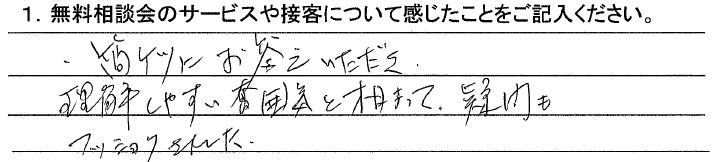 1. 無料相談会のサービスや接客について感じたことをご記入ください。
・簡ケツにお答えいただき、
理解しやすい雰囲気と相まって、疑問も
フッショクされました。